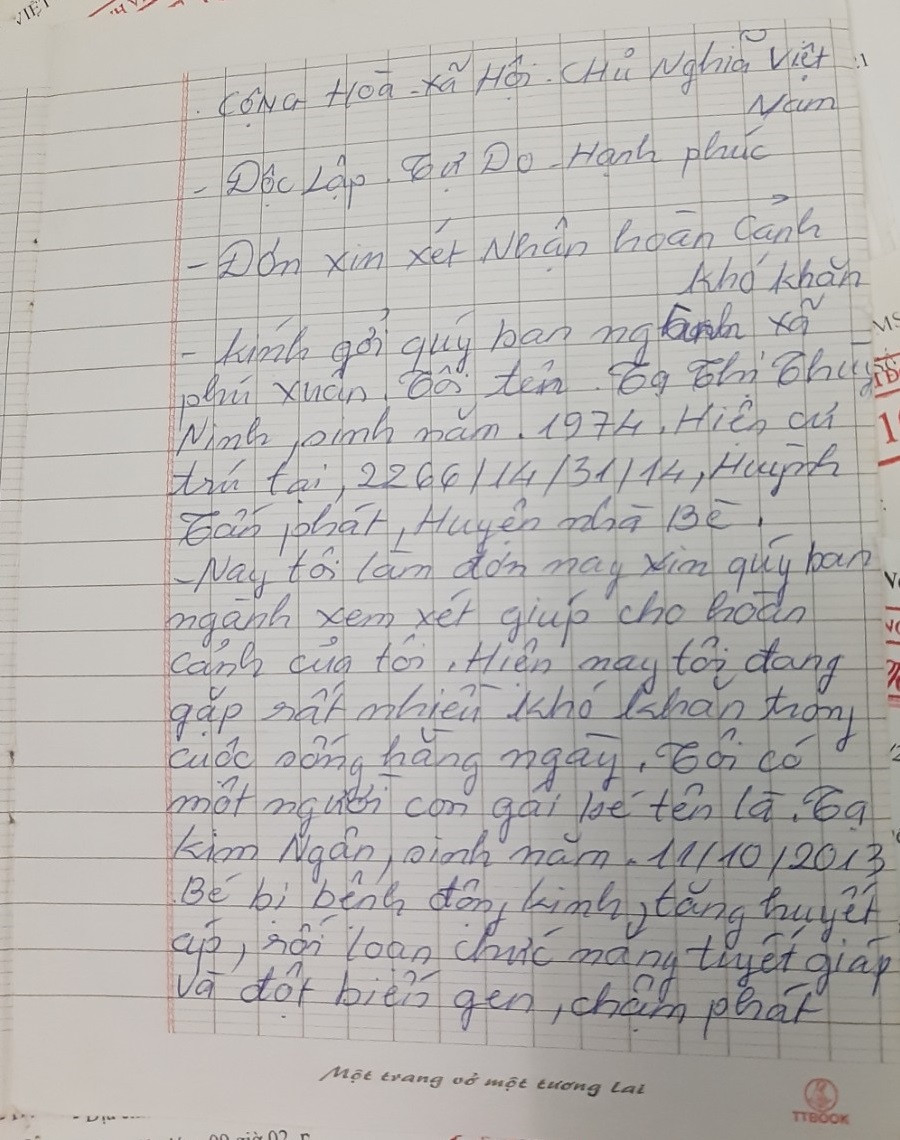 VIỆT
. CỘNG HOÀ - XÃ HỘI - CHỦ Nghĩa Việt
Nam
- Độc Lập. Tự Do - Hạnh phúc
- Đơn xin xét Nhận hoàn Cảnh
khó khăn
- Kính gởi quý ban ngành xã
phú xuân. Tôi tên. Tạ Thị Thuý
Ninh, sinh năm. 1974. Hiện cư
trú tại, 2266/14/31/14, Huỳnh
Tấn phát, Huyện nhà Bè.
- Nay tôi làm đơn nay xin quý ban
ngành xem xét giúp cho hoàn
cảnh của tôi. Hiện nay tôi đang
gặp rất nhiều khó khăn trong
cuộc sống hằng ngày. Tôi có
một người con gái bé tên là. Tạ
Kim Ngân, sinh năm. 11/10/2013
Bé bị bệnh động kinh, tăng huyết
áp, rối loạn chức năng tuyết giáp
và đột biến gen, chậm phát
Một trang vở một tương lai
TTBOOK